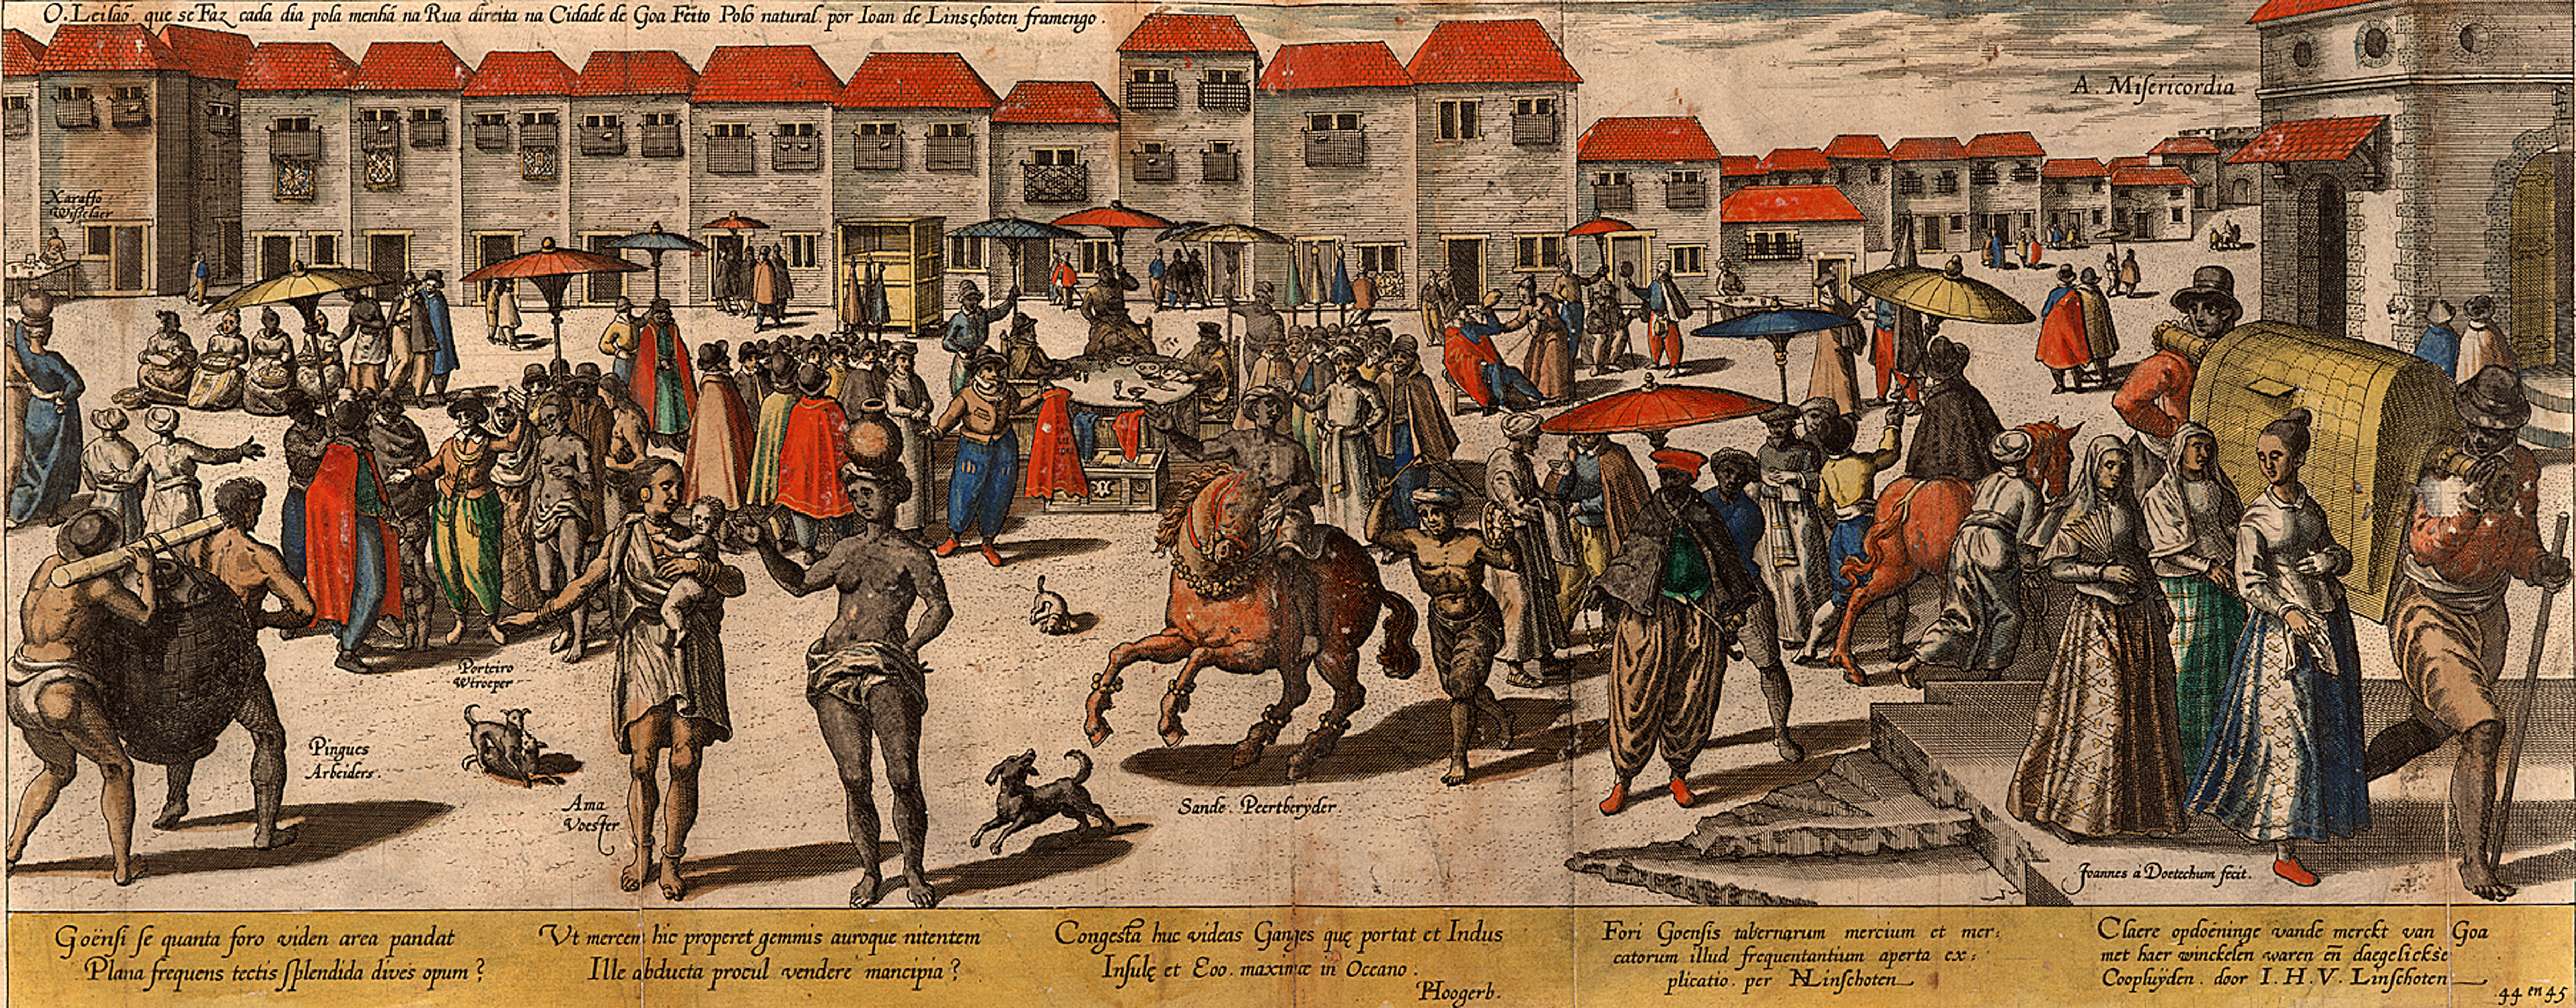 O. Leilaõ. que se Faz cada dia pola menhã na Rua direita na Cidade de Goa Feito Polo natural. por Ioan de Linschoten framengo.
A. Misericordia
Xaraffo
Wisselaer
Porteiro
Wtroeper
Pingues
Arbeiders.
Ama
Voester
Sande. Peertberyder.
Joannes à Doetechum fecit.
Goënsi se quanta foro viden area pandat
Plana frequens tectis splendida dives opum?
Vt mercem hic properet gemmis auroque nitentem
Ille abducta procul vendere mancipia?
Congesta huc videas Ganges quę portat et Indus
Insulę et Eoo. maximæ in Oceano.
Hoogerb.
Fori Goensis tabernarum mercium et mer:
catorum illud frequentantium aperta ex:
plicatio. per Linschoten
Claere opdoeninge vande merckt van Goa
met haer winckelen waren eñ daegelickse
Coopluÿden. door I. H. V. Linschoten
44 en 45